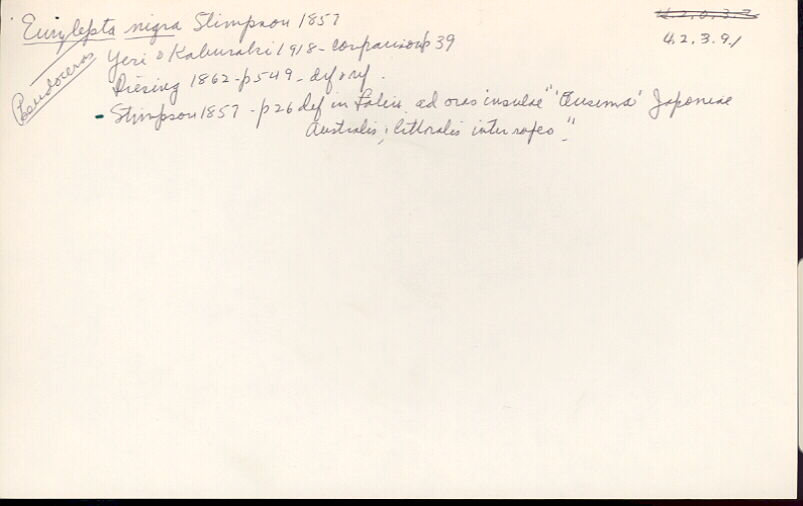 Eurylepta nigra Stimpson 1857
4.2.0.3.2
4.2.3.9.1
Pseudoceros
Yeri & Kaburaki 1918 - comparison p 39
Diesing 1862 - p 549 - def & ref.
- Stimpson 1857 - p 26 def in Latin. ad oras insulae "Ousima" Japoniae
Australis; littoralis inter rupes"